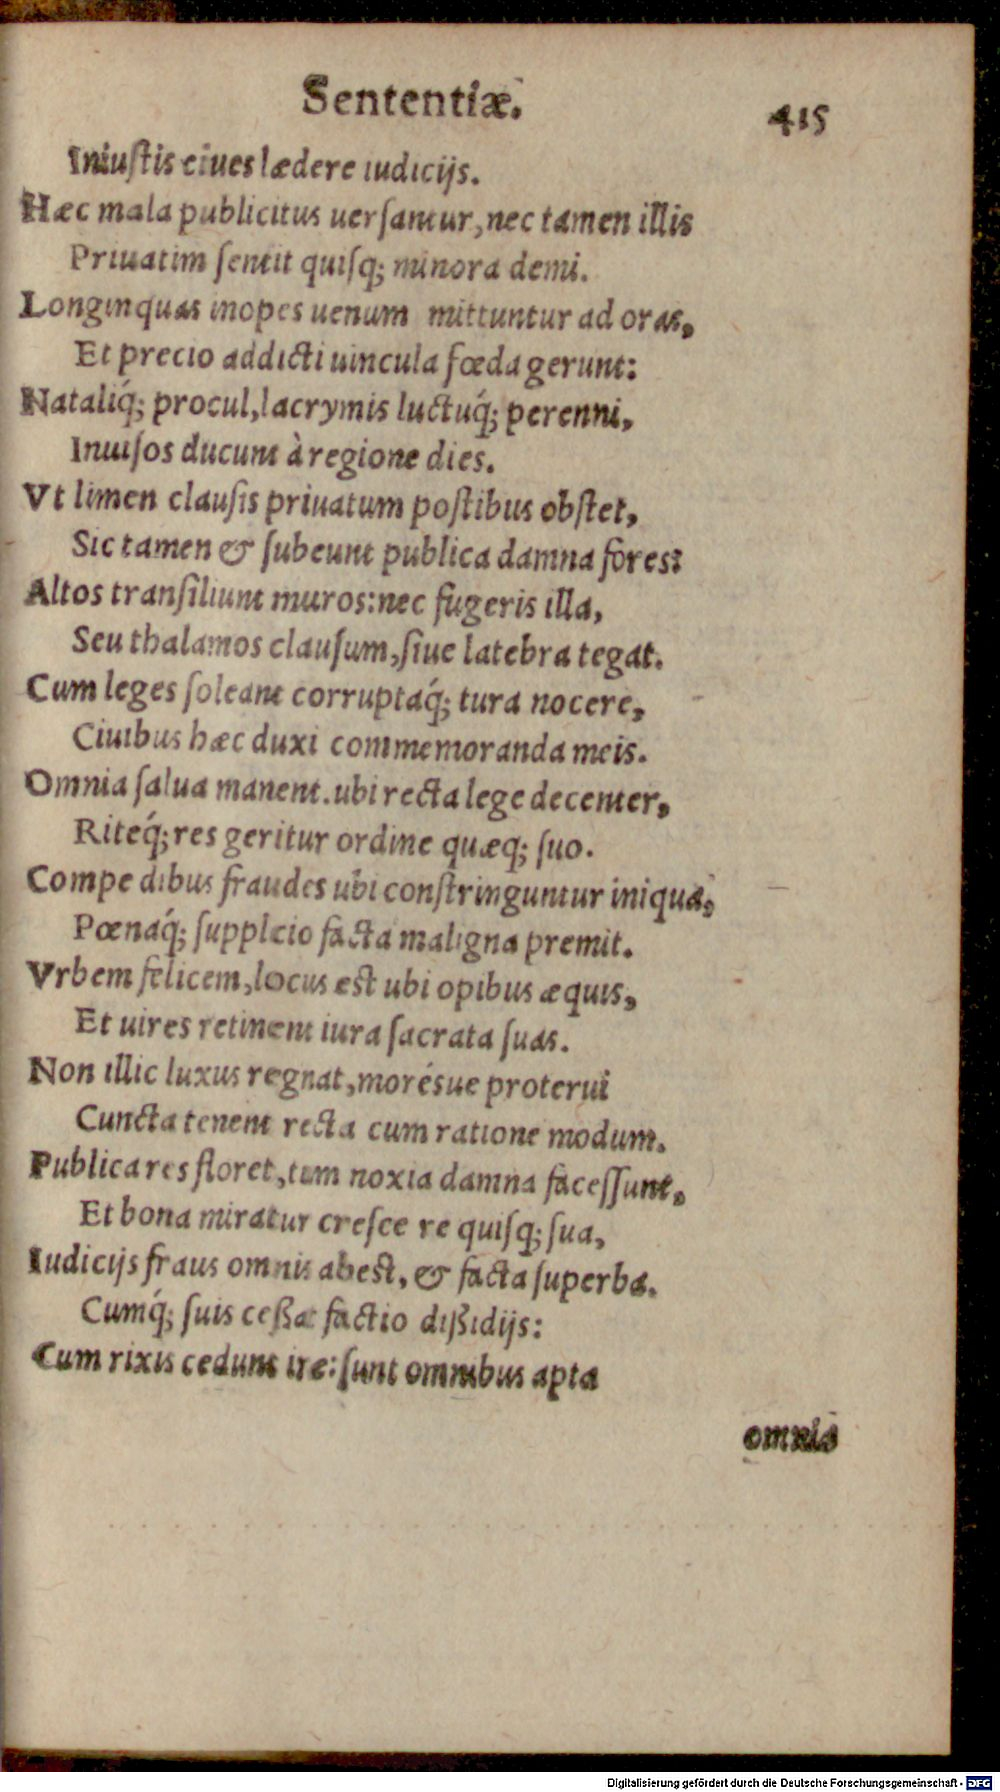 Sententiæ. 415
Iniustis ciues lædere iudicijs.
Hæc mala publicitus uersantur, nec tamen illis
Priuatim sentit quisq; minora demi.
Longinquas inopes uenum mittuntur ad oras,
Et precio addicti uincula fœda gerunt:
Nataliq́; procul, lacrymis luctuq́; perenni,
Inuisos ducunt à regione dies.
Vt limen clausis priuatum postibus obstet,
Sic tamen & subeunt publica damna fores:
Altos transiliunt muros: nec fugeris illa,
Seu thalamos clausum, siue latebra tegat.
Cum leges soleant corruptaq́; iura nocere,
Ciuibus hæc duxi commemoranda meis.
Omnia salua manent. ubi recta lege decenter,
Riteq́; res geritur ordine quæq; suo.
Compe dibus fraudes ubi constringuntur iniquæ,
Pœnaq́; supplcio facta maligna premit.
Vrbem felicem, locus est ubi opibus æquis,
Et uires retinent iura sacrata suas.
Non illic luxus regnat, morésue proterui
Cuncta tenent recta cum ratione modum.
Publica res floret, tum noxia damna facessunt,
Et bona miratur cresce re quisq; sua,
Iudicijs fraus omnis abest, & facta superba.
Cumq́; suis ceßat factio dißidijs:
Cum rixis cedunt iræ: sunt omnibus apta
omnia
Digitalisierung gefördert durch die Deutsche Forschungsgemeinschaft - DFG